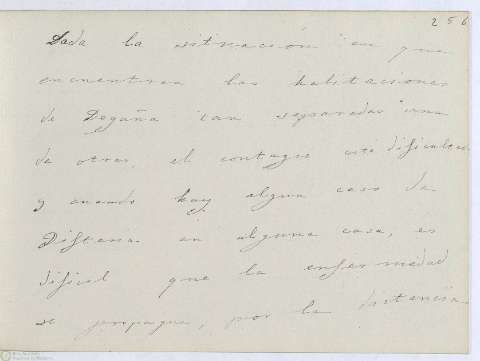 256
Dada la situación en que
encuentran las habitaciones
de Degaña tan separadas unas
de otras, el contagio esta dificultado
y cuando hay algun caso de
Difteria en alguna casa, es
dificil que la enfermedad
se propague, por la distancia